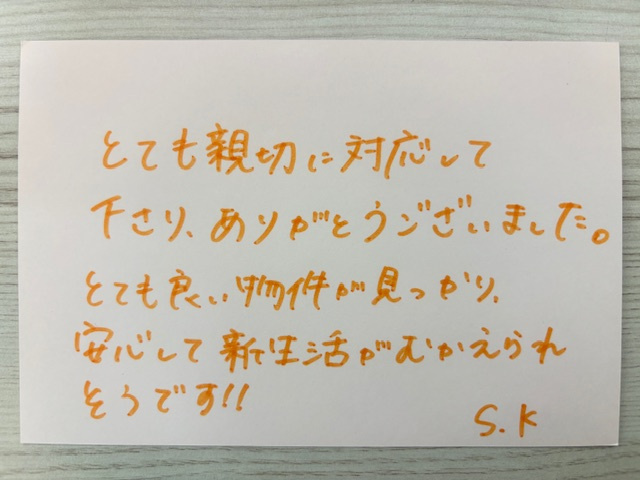 とても親切に対応して
下さり、ありがとうございました。
とても良い物件が見つかり、
安心して新生活がむかえられ
そうです!!
S.K